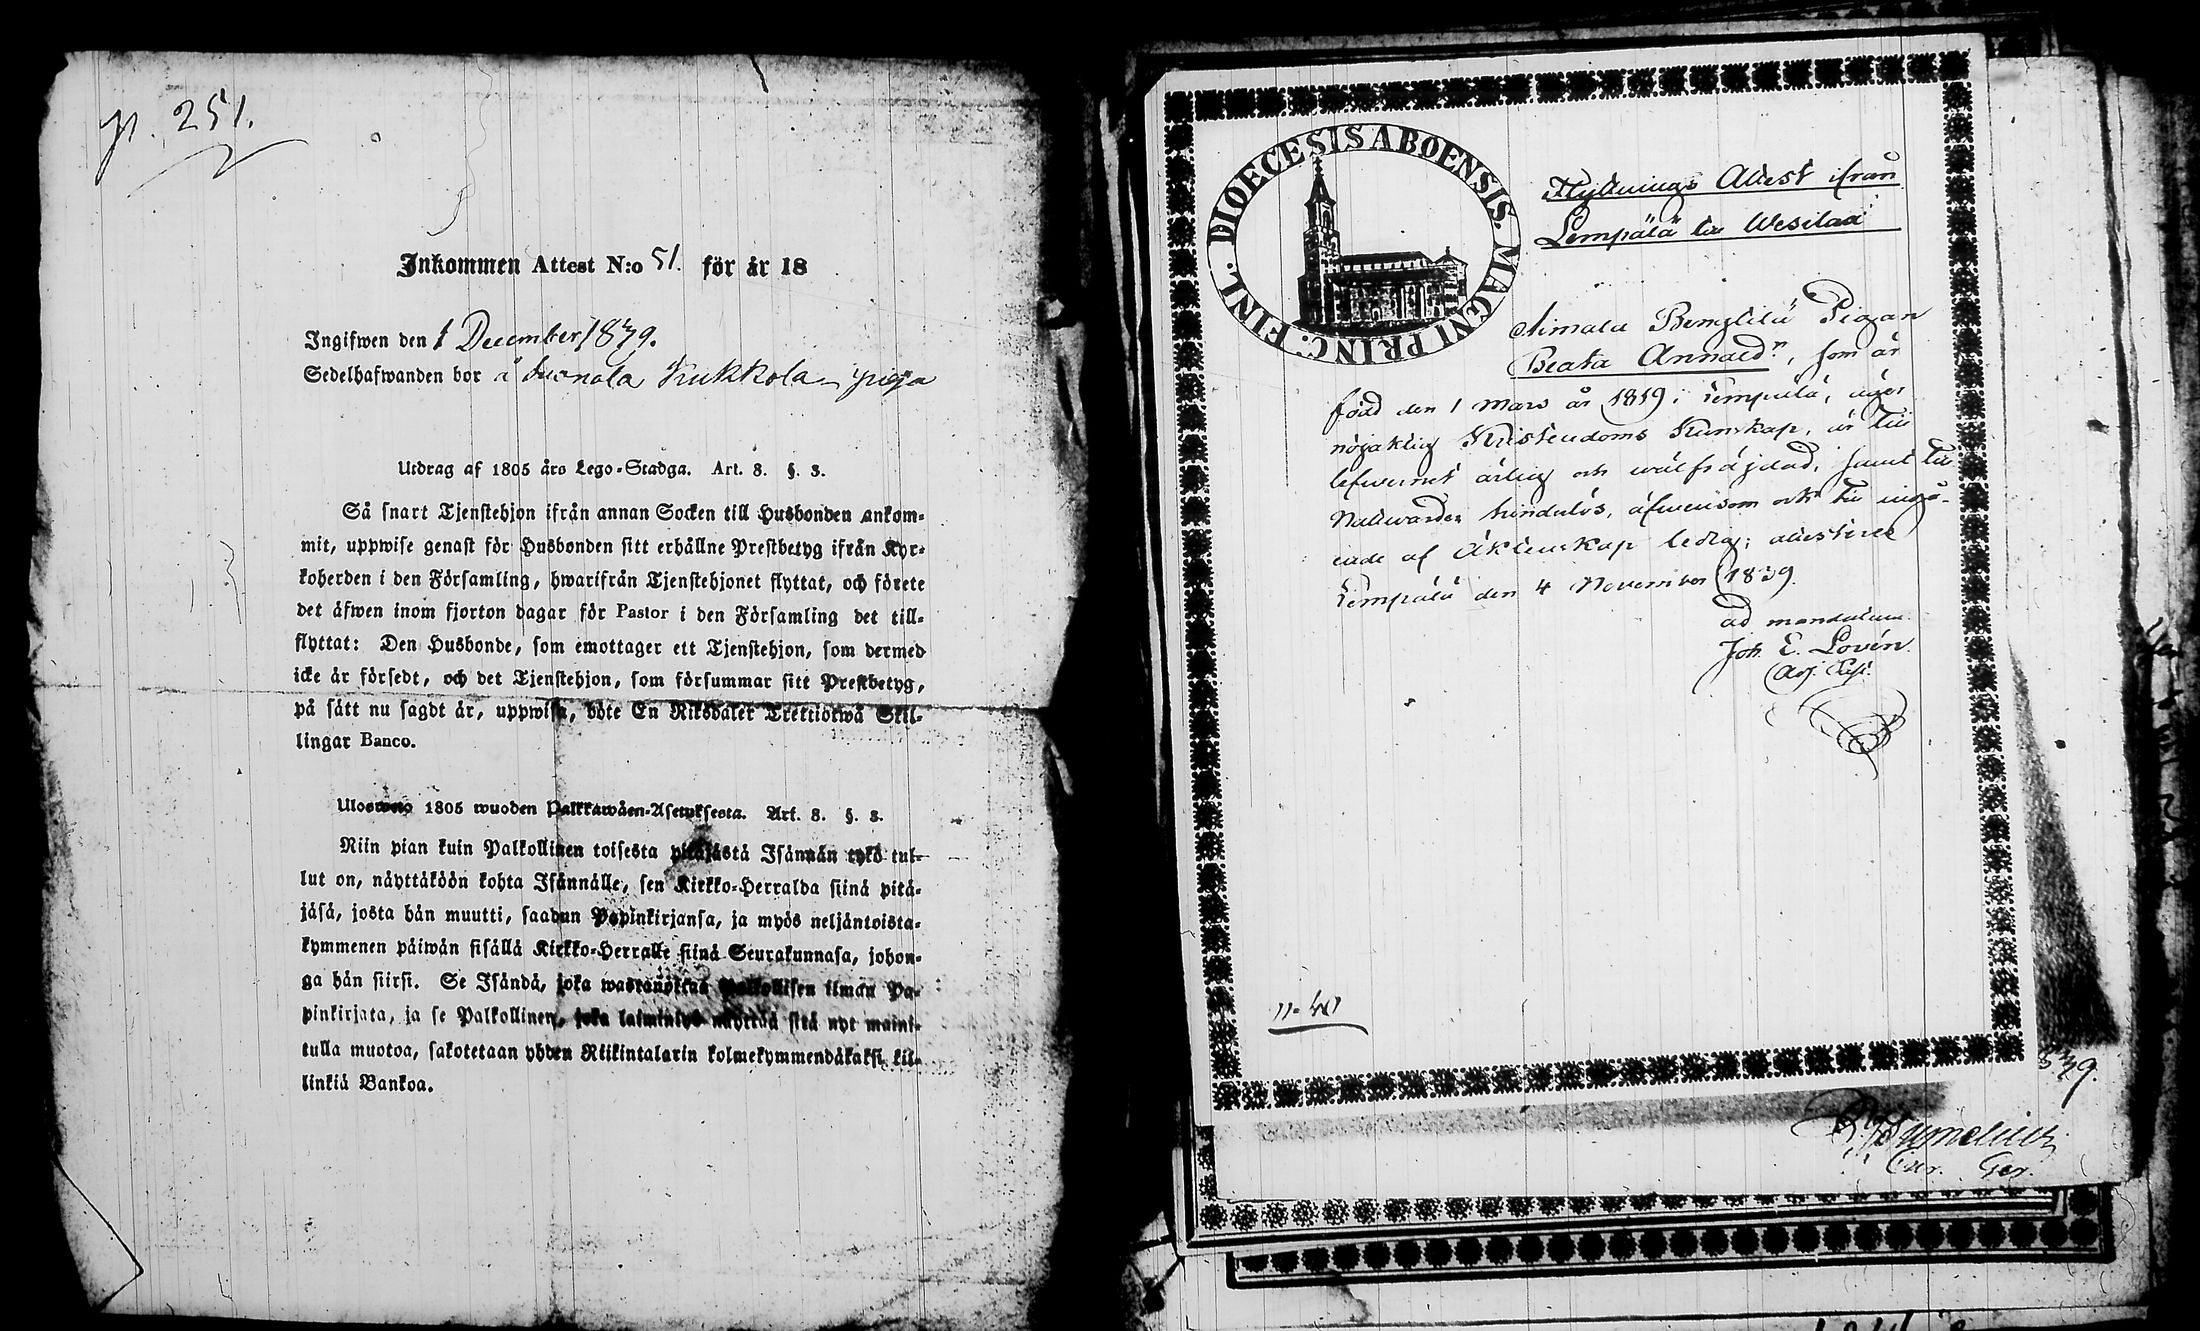 p. 251.
Inkommen Attest N:o 51. för år 18
Ingifwen den 1 December 1839.
Sedelhafwanden bor å Kukkola piga
Utdrag af 1805 års Lego-Stadga. Art. 8. §. 3.
Så snart Tjenstehjon ifrån annan Socken till Husbonden ankom-
mit, uppwise genast för Husbonden sitt erhållne Prestbetyg ifrån Kyr-
koherden i den Församling, hwarifrån Tjenstehjonet flyttat, och förete
det äfwen inom fjorton dagar för Pastor i den Församling det till-
flyttat: Den Husbonde, som emottager ett Tjenstehjon, som dermed
icke är försedt, och det Tjenstehjon, som försummar sitt Prestbetyg,
på sätt nu sagdt är, uppwisa, böte En Riksdaler Trettiotwå Skil-
lingar Banco.
Ulosweto 1805 wuoden Palkkawäen-Asetuksesta. Art. 8. §. 3.
Niin pian kuin Palkollinen toisesta pitäjästä Isännän tykö tul-
lut on, näyttäköön kohta Isännälle, sen Kirkko-Herralda siinä pitä-
jäsä, josta hän muutti, saadun Papinkirjansa, ja myös neljäntoista-
kymmenen päiwän sisällä Kirkko-Herralle siinä Seurakunnasa, johon-
ga hän siirsi. Se Isändä, joka wastanottaa Palkollisen ilman Pa-
pinkirjata, ja se Palkollinen, joka laiminlyö näyttää sitä nyt maini-
tulla muotoa, sakotetaan yhden Riikintalarin kolmekymmendäkaksi kil-
linkiä Bankoa.
DIOECESIS ABOENSIS. MAGNI PRINC. FINL.
Flyttnings Attest ifrån
Lempälä till Wesilax
Aimala Bengtilä Pigan
Beata Annaedr, som är
född den 1 Mars år 1819 i Lempälä, äger
nöjaktig Kristendoms Kunskap, är till
lefwernet ärlig och wälfräjdad, samt till
Nattwarden hinderlös, äfwensom ock till ingå-
ende af Äktenskap ledig; attesteras
Lempälä den 4 November 1839.
ad mandatum
Joh. E. Lovén
Adj.
839.